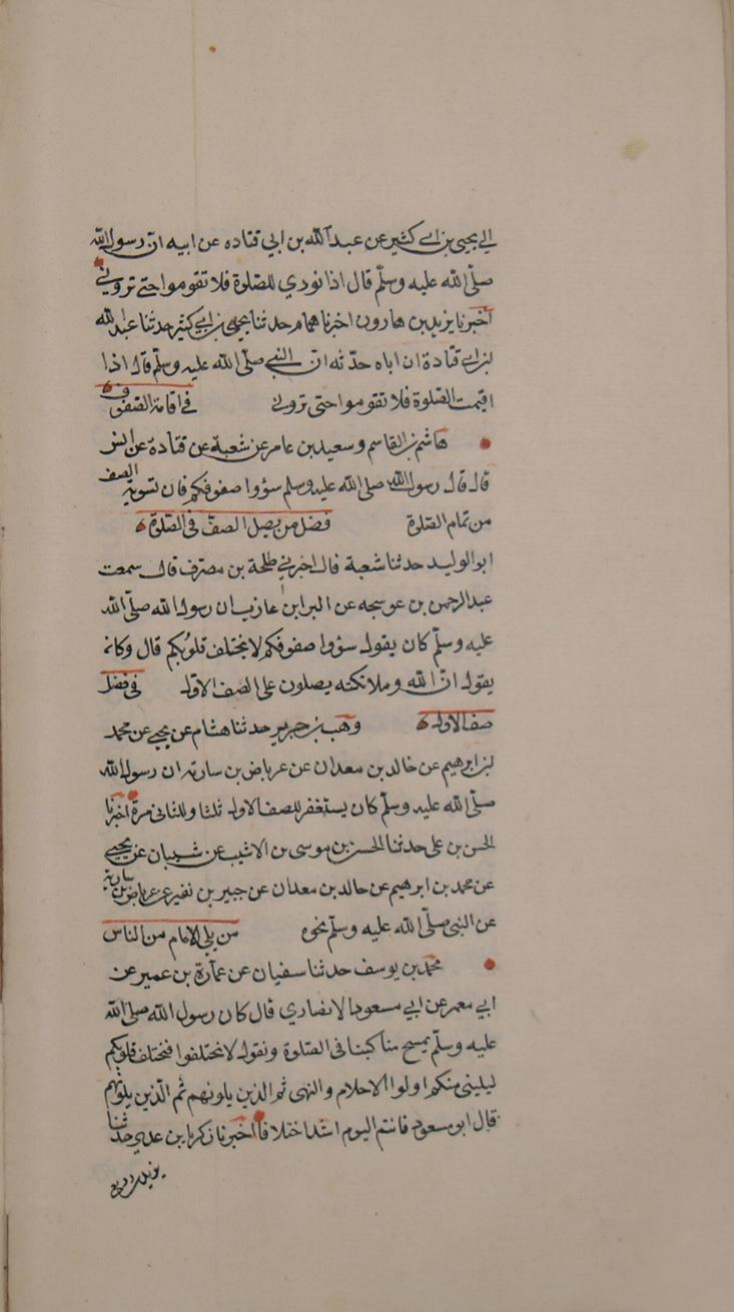 الي يحيى بن ابي كثير عن عبد الله بن ابي قتاده عن ابيه ان رسول الله
صلّى الله عليه وسلّم قال اذا نودي للصّلوة فلا تقوموا حتى تروني
اخبرنا يزيد بن هارون اخبرنا همام حدثنا يحيى بن ابي كثير حدثنا عبد الله
بن ابي قتادة ان اباه حدّثه انّ النبي صلّى الله عليه وسلّم قال اذا
اقيمت الصّلوة فلا تقوموا حتى تروني في اقامة الصفوف
هاشم بن القاسم وسعيد بن عامر عن شعبة عن قتادة عن انس
قال قال رسول الله صلى الله عليه وسلم سوّوا صفوفكم فان تسوية الصف
من تمام الصّلوة فضل من يصل الصفّ في الصّلوة
ابو الوليد حدثنا شعبة قال اخبرني طلحة بن مصرّف قال سمعت
عبد الرحمن بن عوسجه عن البرا بن عازب ان رسول الله صلّى الله
عليه وسلّم كان يقول سوّوا صفوفكم لا تختلف قلوبُكم قال وكان
يقول انّ الله وملائكته يصلون على الصف الاول في فضل
صف الاول وهب بن جرير حدثنا هشام عن يحيى عن محمد
بن ابرهيم عن خالد بن معدان عن عرباض بن سارية ان رسول الله
صلّى الله عليه وسلّم كان يستغفر للصف الاول ثلثا وللثاني مرة اخبرنا
الحسن بن علي حدثنا الحسن بن موسى بن الاشيب عن شيبان عن يحيى
عن محمد بن ابرهيم عن خالد بن معدان عن جبير بن نفير عن عرباض بن سارية
عن النبي صلّى الله عليه وسلّم نحوه من يلي الامام من الناس
محمد بن يوسف حدثنا سفيان عن عمارة بن عمير عن
ابي معمر عن ابي مسعود الانصاري قال كان رسول الله صلى الله
عليه وسلّم يمسح مناكبنا في الصّلوة ويقول لا تختلفوا فتختلف قلوبكم
ليليني منكم اولوا الاحلام والنهى ثم الذين يلونهم ثم الّذين يلونهم
قال ابو مسعود فانتم اليوم اشد اختلافا اخبرنا زكريا بن عدي حدثنا